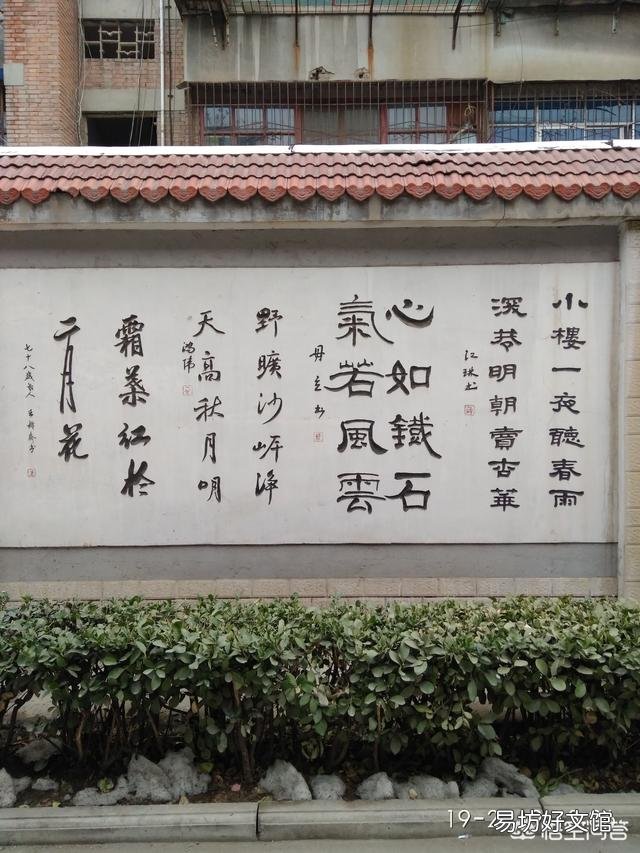 小樓一夜聽春雨
深巷明朝賣杏華
江琳书
心如鐵石
氣若風雲
野曠沙岸淨
天高秋月明
鸿伟
霜葉紅於
二月花
七十八歲老人
19-2
易坊好文馆
悟空问答